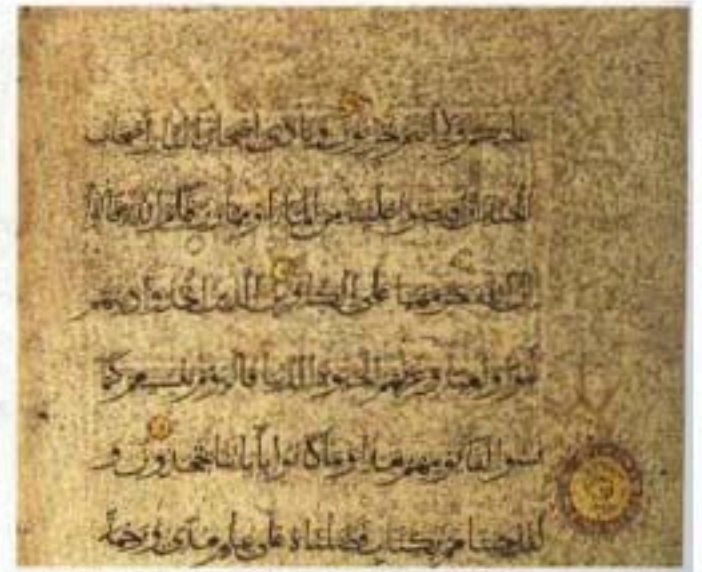 عليكم ولا أنتم تحزنون ونادى أصحاب النار أصحاب
الجنة أن أفيضوا علينا من الماء أو مما رزقكم الله قالوا
إن الله حرمهما على الكافرين الذين اتخذوا دينهم
لهوا ولعبا وغرتهم الحيوة الدنيا فاليوم ننسيهم كما
نسوا لقا يومهم هذا وما كانوا بآياتنا يجحدون و
لقد جئناهم بكتاب فصلناه على علم هدى ورحمة